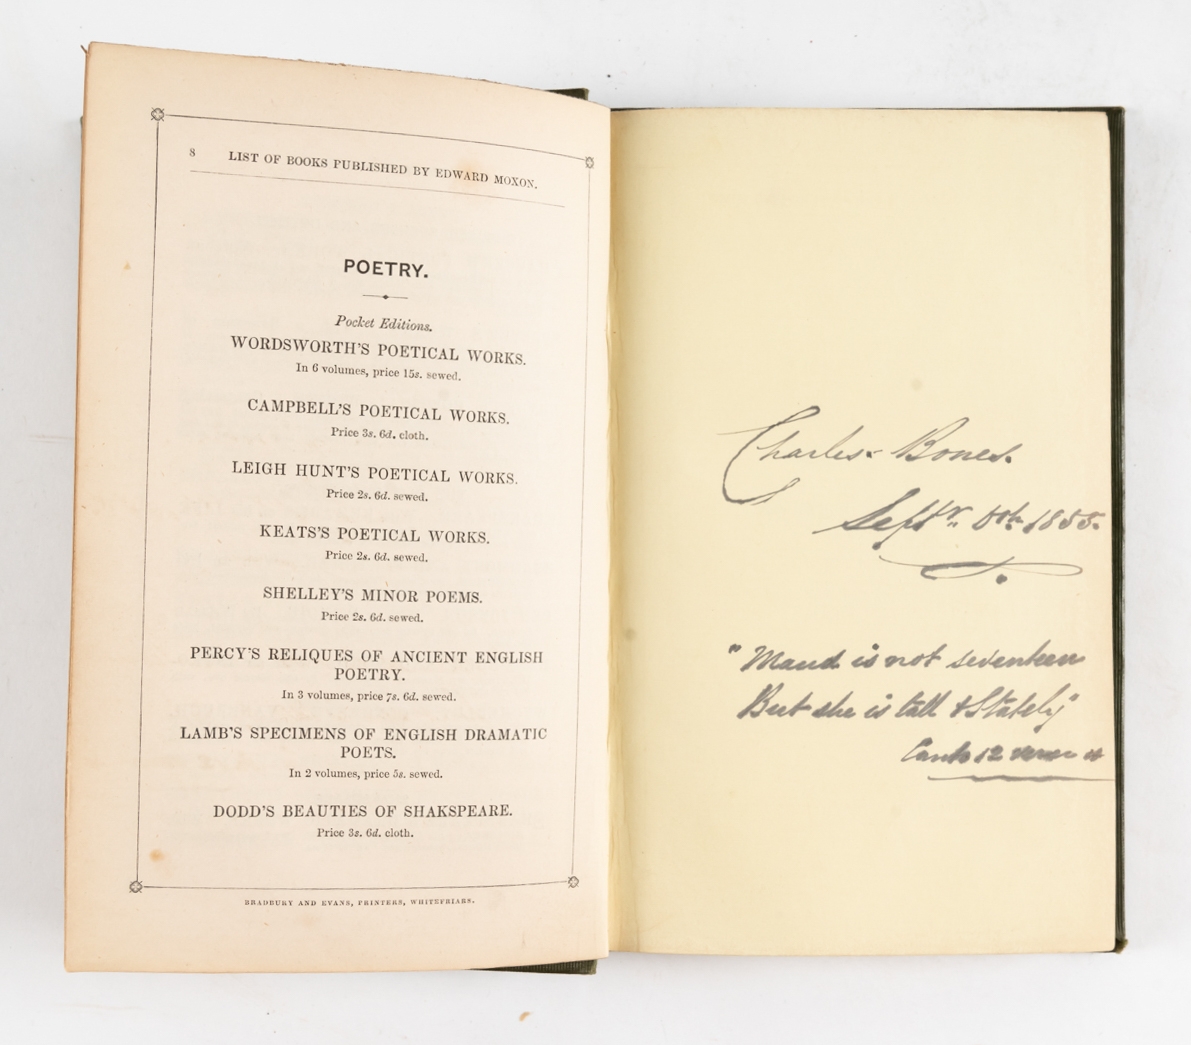 8 LIST OF BOOKS PUBLISHED BY EDWARD MOXON.
POETRY.
Pocket Editions.
WORDSWORTH'S POETICAL WORKS.
In 6 volumes, price 15s. sewed.
CAMPBELL'S POETICAL WORKS.
Price 3s. 6d. cloth.
LEIGH HUNT'S POETICAL WORKS.
Price 2s. 6d. sewed.
KEATS'S POETICAL WORKS.
Price 2s. 6d. sewed.
SHELLEY'S MINOR POEMS.
Price 2s. 6d. sewed.
PERCY'S RELIQUES OF ANCIENT ENGLISH
POETRY.
In 3 volumes, price 7s. 6d. sewed.
LAMB'S SPECIMENS OF ENGLISH DRAMATIC
POETS.
In 2 volumes, price 5s. sewed.
DODD'S BEAUTIES OF SHAKSPEARE.
Price 3s. 6d. cloth.
BRADBURY AND EVANS, PRINTERS, WHITEFRIARS.
Charles Bones.
Septr. 1855.
"Maud is not seventeen
But she is tall & Stately"
Canto 12